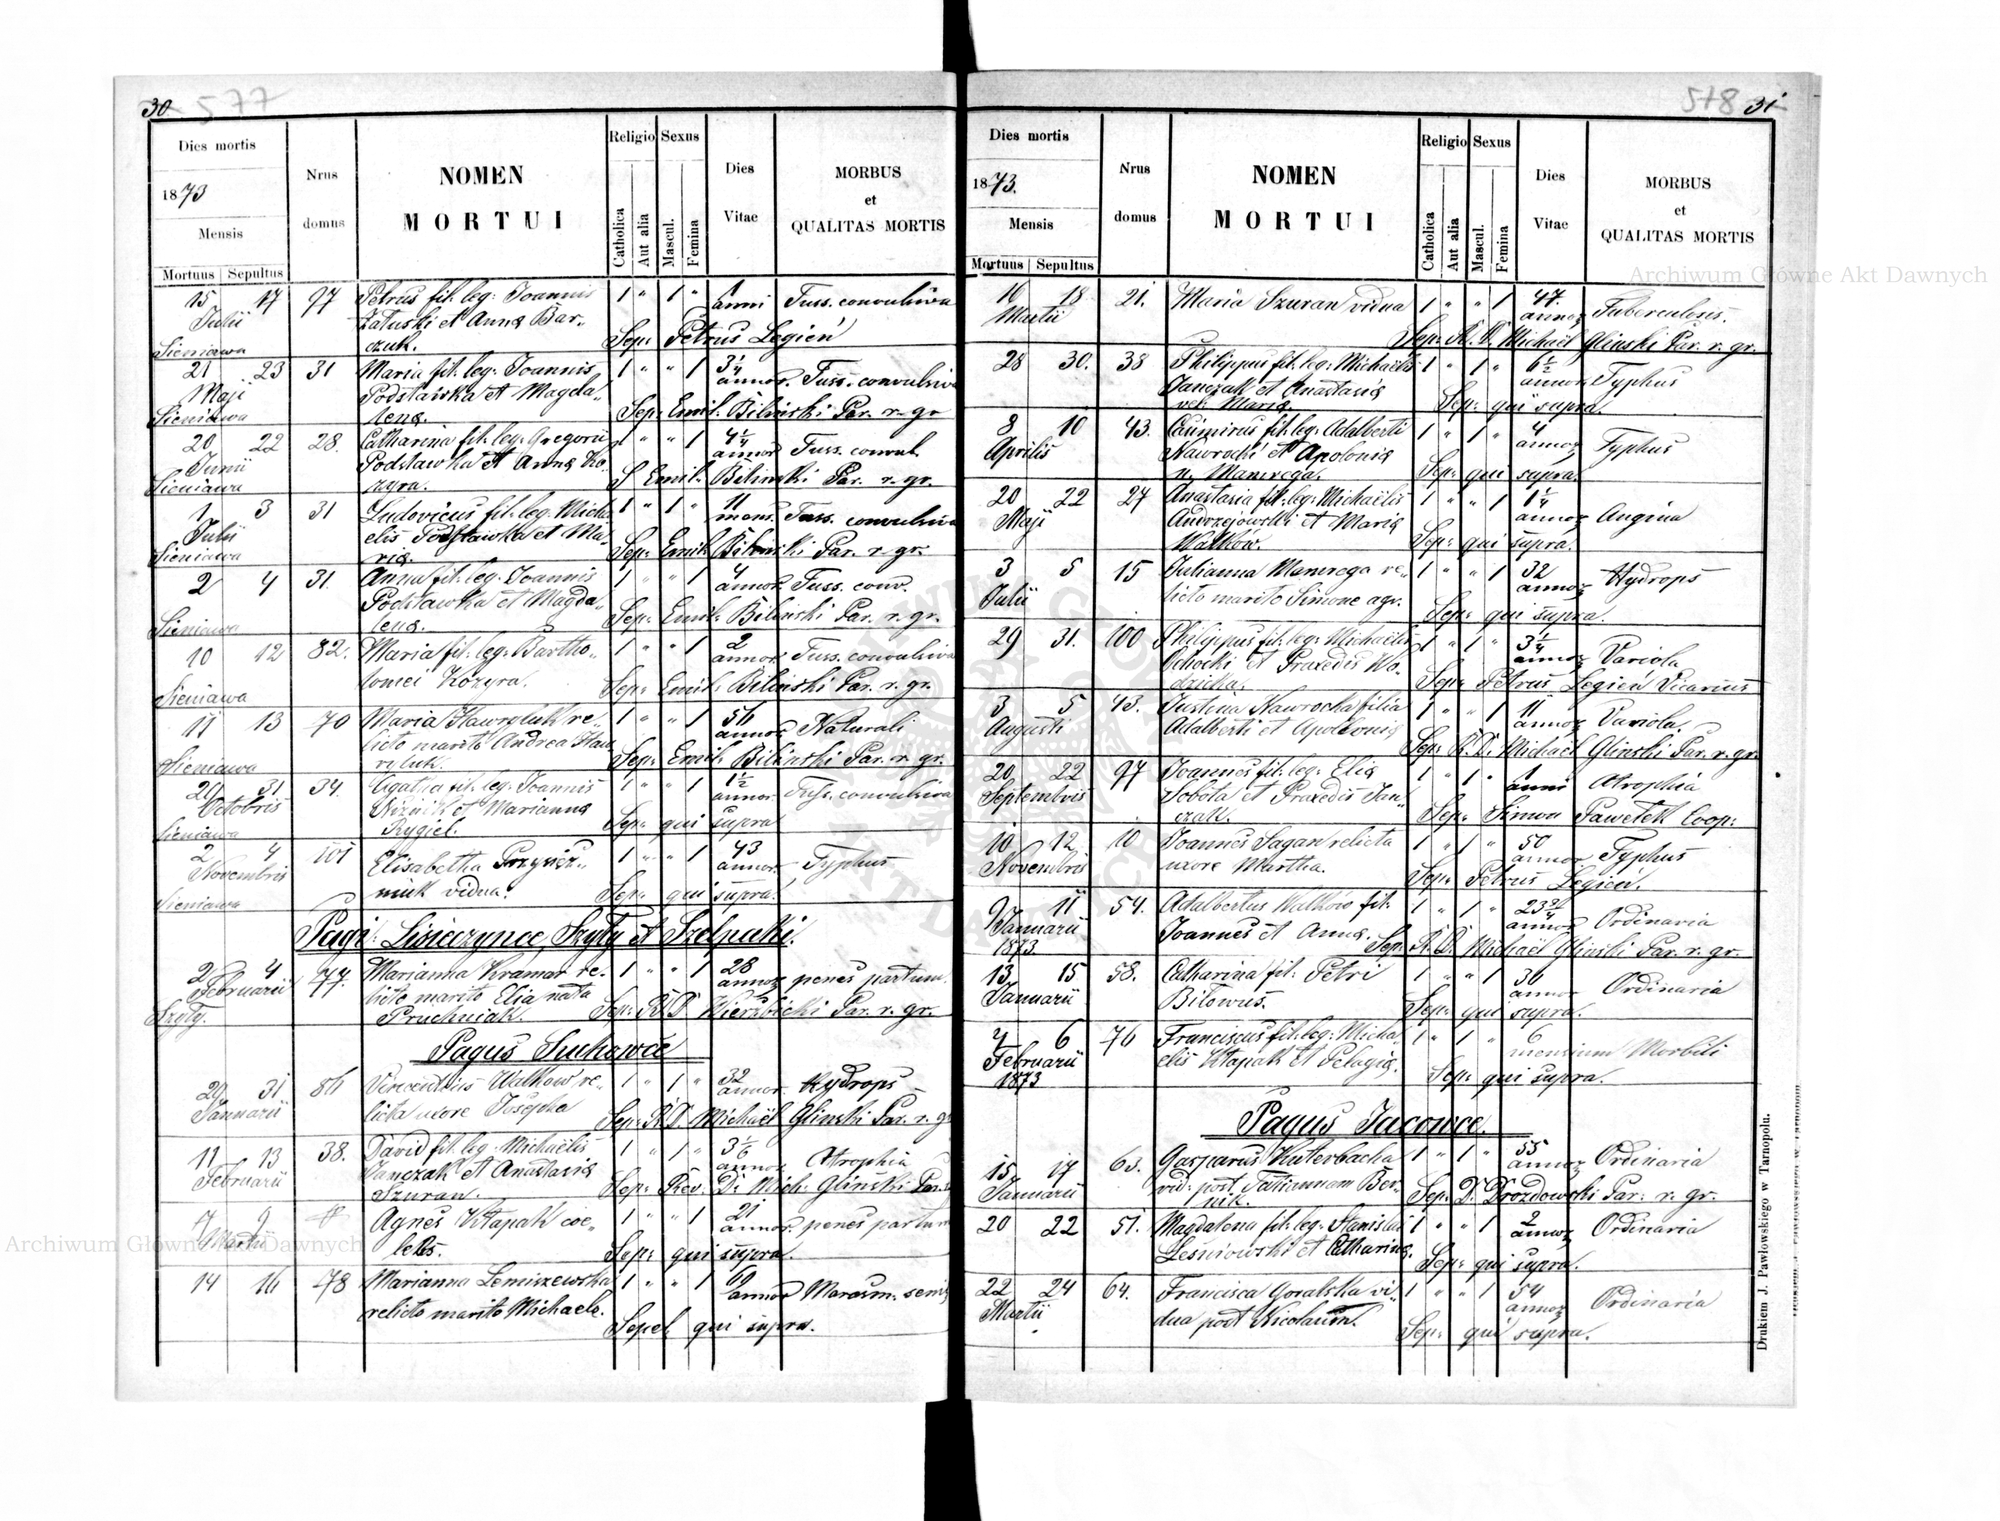 30 577
Dies mortis
1873
Mensis
Mortuus Sepultus
Nrus domus
NOMEN
MORTUI
Religio Sexus
Catholica Aut alia Mascul. Femina
Dies Vitae
MORBUS
et
QUALITAS MORTIS
15 17 97 Petrus fil. leg. Joannis 1 " 1 " 1 anni Tuss. convulsiva
Julii Załuski et Anna Bar-
Sieniawa czuk. Sep: Petrus Legień
21 23 31 Maria fil. leg. Joannis 1 " " 1 3 1/4 annor. Tuss. convulsiva
Maji Podstawka et Magda-
Sieniawa lena. Sep: Emil. Biliński Par. r. gr
20 22 28. Catharina fil. leg. Gregorii 1 " " 1 4 1/4 annor Tuss. convul.
Junii Podstawka et Anna Ko-
Sieniawa zyra. S Emil. Biliński Par. r. gr.
1 3 31 Ludovicus fil. leg. Micha- 1 " 1 " 11 mens. Tuss. convulsiva
Julii elis Podstawka et Ma-
Sieniawa ria. Sep: Emil. Biliński Par. r. gr.
2 4 31. Anna fil. leg. Joannis 1 " " 1 4 annor. Tuss. conv.
Podstawka et Magda-
Sieniawa lena. Sep: Emil. Biliński Par. r. gr.
10 12 82. Maria fil. leg. Bartho- 1 " " 1 2 annor. Tuss. convulsiva
Sieniawa lomei Kozyra. Sep: Emil. Biliński Par. r. gr.
11 13 70 Maria Hawryluk re- 1 " " 1 56 annor Naturali
licto marito Andrea Haw
Sieniawa ryluk. Sep: Emil. Biliński Par. r. gr.
29 31 34. Agatha fil. leg. Joannis 1 " " 1 1 1/2 annor. Tuss. convulsiva
Octobris et Marianna
Sieniawa Rygiel. Sep: qui supra
2 4 101 Elisabetha 1 " " 1 43 annor. Typhus
Novembris niuk vidua.
Sieniawa Sep: qui supra.
Pagi: Lisieczynce, Szyły et Szelpaki.
2 4 77. Marianna Kramar re- 1 " " 1 28 annor penes partum.
Februarii licto marito Elia nata
Szyły. Pruchniak. Sep: R. D. Wierzbicki Par. r. gr.
Pagus Suchowce
29 31 86 Vincentius Walkow re- 1 " 1 " 32 annor. Hydrops
Januarii licta uxore Josepha Sep: R. D. Michaël Glinski Par. r. gr
11 13 38. David fil. leg. Michaëlis 1 " 1 " 3 1/6 annor Atrophia
Februarii Janczak et Anastasia
Szuran. Sep: Rev. D. Mich. Glinski Par.
7 9 Agnes Kłapak coe- 1 " " 1 21 annor. penes partum
Martii lebs. Sep: qui supra.
14 16 78 Marianna Lemiszewska 1 " " 1 60 annor Marasm. senis
relicto marito Michaele.
Sepel. qui supra.
578 31
Dies mortis
1873.
Mensis
Mortuus Sepultus
Nrus domus
NOMEN
MORTUI
Religio Sexus
Catholica Aut alia Mascul. Femina
Dies Vitae
MORBUS
et
QUALITAS MORTIS
16 18 21. Maria Szuran vidua 1 " " 1 47. annor Tuberculosis.
Martii Sep: R. D. Michaël Glinski Par. r. gr.
28 30. 38 Philippus fil. leg. Michaëlis 1 " 1 " 6 1/2 annor Typhus
Janczak et Anastasia
vel. Maria. Sep: qui supra.
8 10 43. Casimirus fil. leg. Adalberti 1 " 1 " 4 annor Typhus
Aprilis Nawrocki et Apolonia
n. Mamrega. Sep: qui supra.
20 22 27 Anastasia fil. leg. Michaëlis 1 " " 1 1 1/4 annor Angina
Maji Andrzejowski et Maria
Walków. Sep: qui supra.
3 5 15 Julianna Mamrega re- 1 " " 1 32 annor Hydrops
Julii licto marito Simone agr. Sep: qui supra.
29 31. 100 Philippus fil. leg. Michaëlis 1 " 1 " 3 1/4 annor Variola
Ochocki et Praxedis Wo-
dzicka. Sep: Petrus Legień Vicarius
3 5 43. Justina Nawrocka filia 1 " " 1 11 annor Variola.
Augusti Adalberti et Apolonia Sep: R. D. Michaël Glinski Par. r. gr.
20 22 97 Joannes fil. leg. Elia 1 " 1 " 1 anni Atrophia
Septembris Sobota et Praxedis Jan-
czak. Sep: Simon Pawełek Coop:
10 12 10 Joannes Sagan relicta 1 " 1 " 50 annor Typhus
Novembris uxore Martha. Sep: Petrus Legień.
9 11 54. Adalbertus Walków fil. 1 " 1 " 23 annor Ordinaria
Januarii Joannes et Anna.
1873 Sep: R. D. Michaël Glinski Par. r. gr.
13 15 58. Catharina fil. Petri 1 " " 1 36 annor Ordinaria
Januarii Biłowus. Sep: qui supra.
4 6 76 Franciscus fil. leg. Micha- 1 " 1 " 6 mensium Morbili
Februarii elis Kłapak et Pelagia.
1873 Sep: qui supra.
Pagus Jacowce.
15 17 63. Gasparus Kuterbacha 1 " 1 " 55 annor Ordinaria
Januarii vid. post Juliannam Ber-
nik. Sep: D. Drozdowski Par. r. gr.
20 22 51. Magdalena fil. leg. Stanislai 1 " " 1 2 annor Ordinaria
Leśniowski et Catharina. Sep: qui supra.
22 24 64. Francisca Goralska vi- 1 " " 1 54 annor Ordinaria
Martii dua post Nicolaum. Sep: qui supra.
Drukiem J. Pawłowskiego w Tarnopolu.
Archiwum Główne Akt Dawnych
Archiwum Główne Akt Dawnych